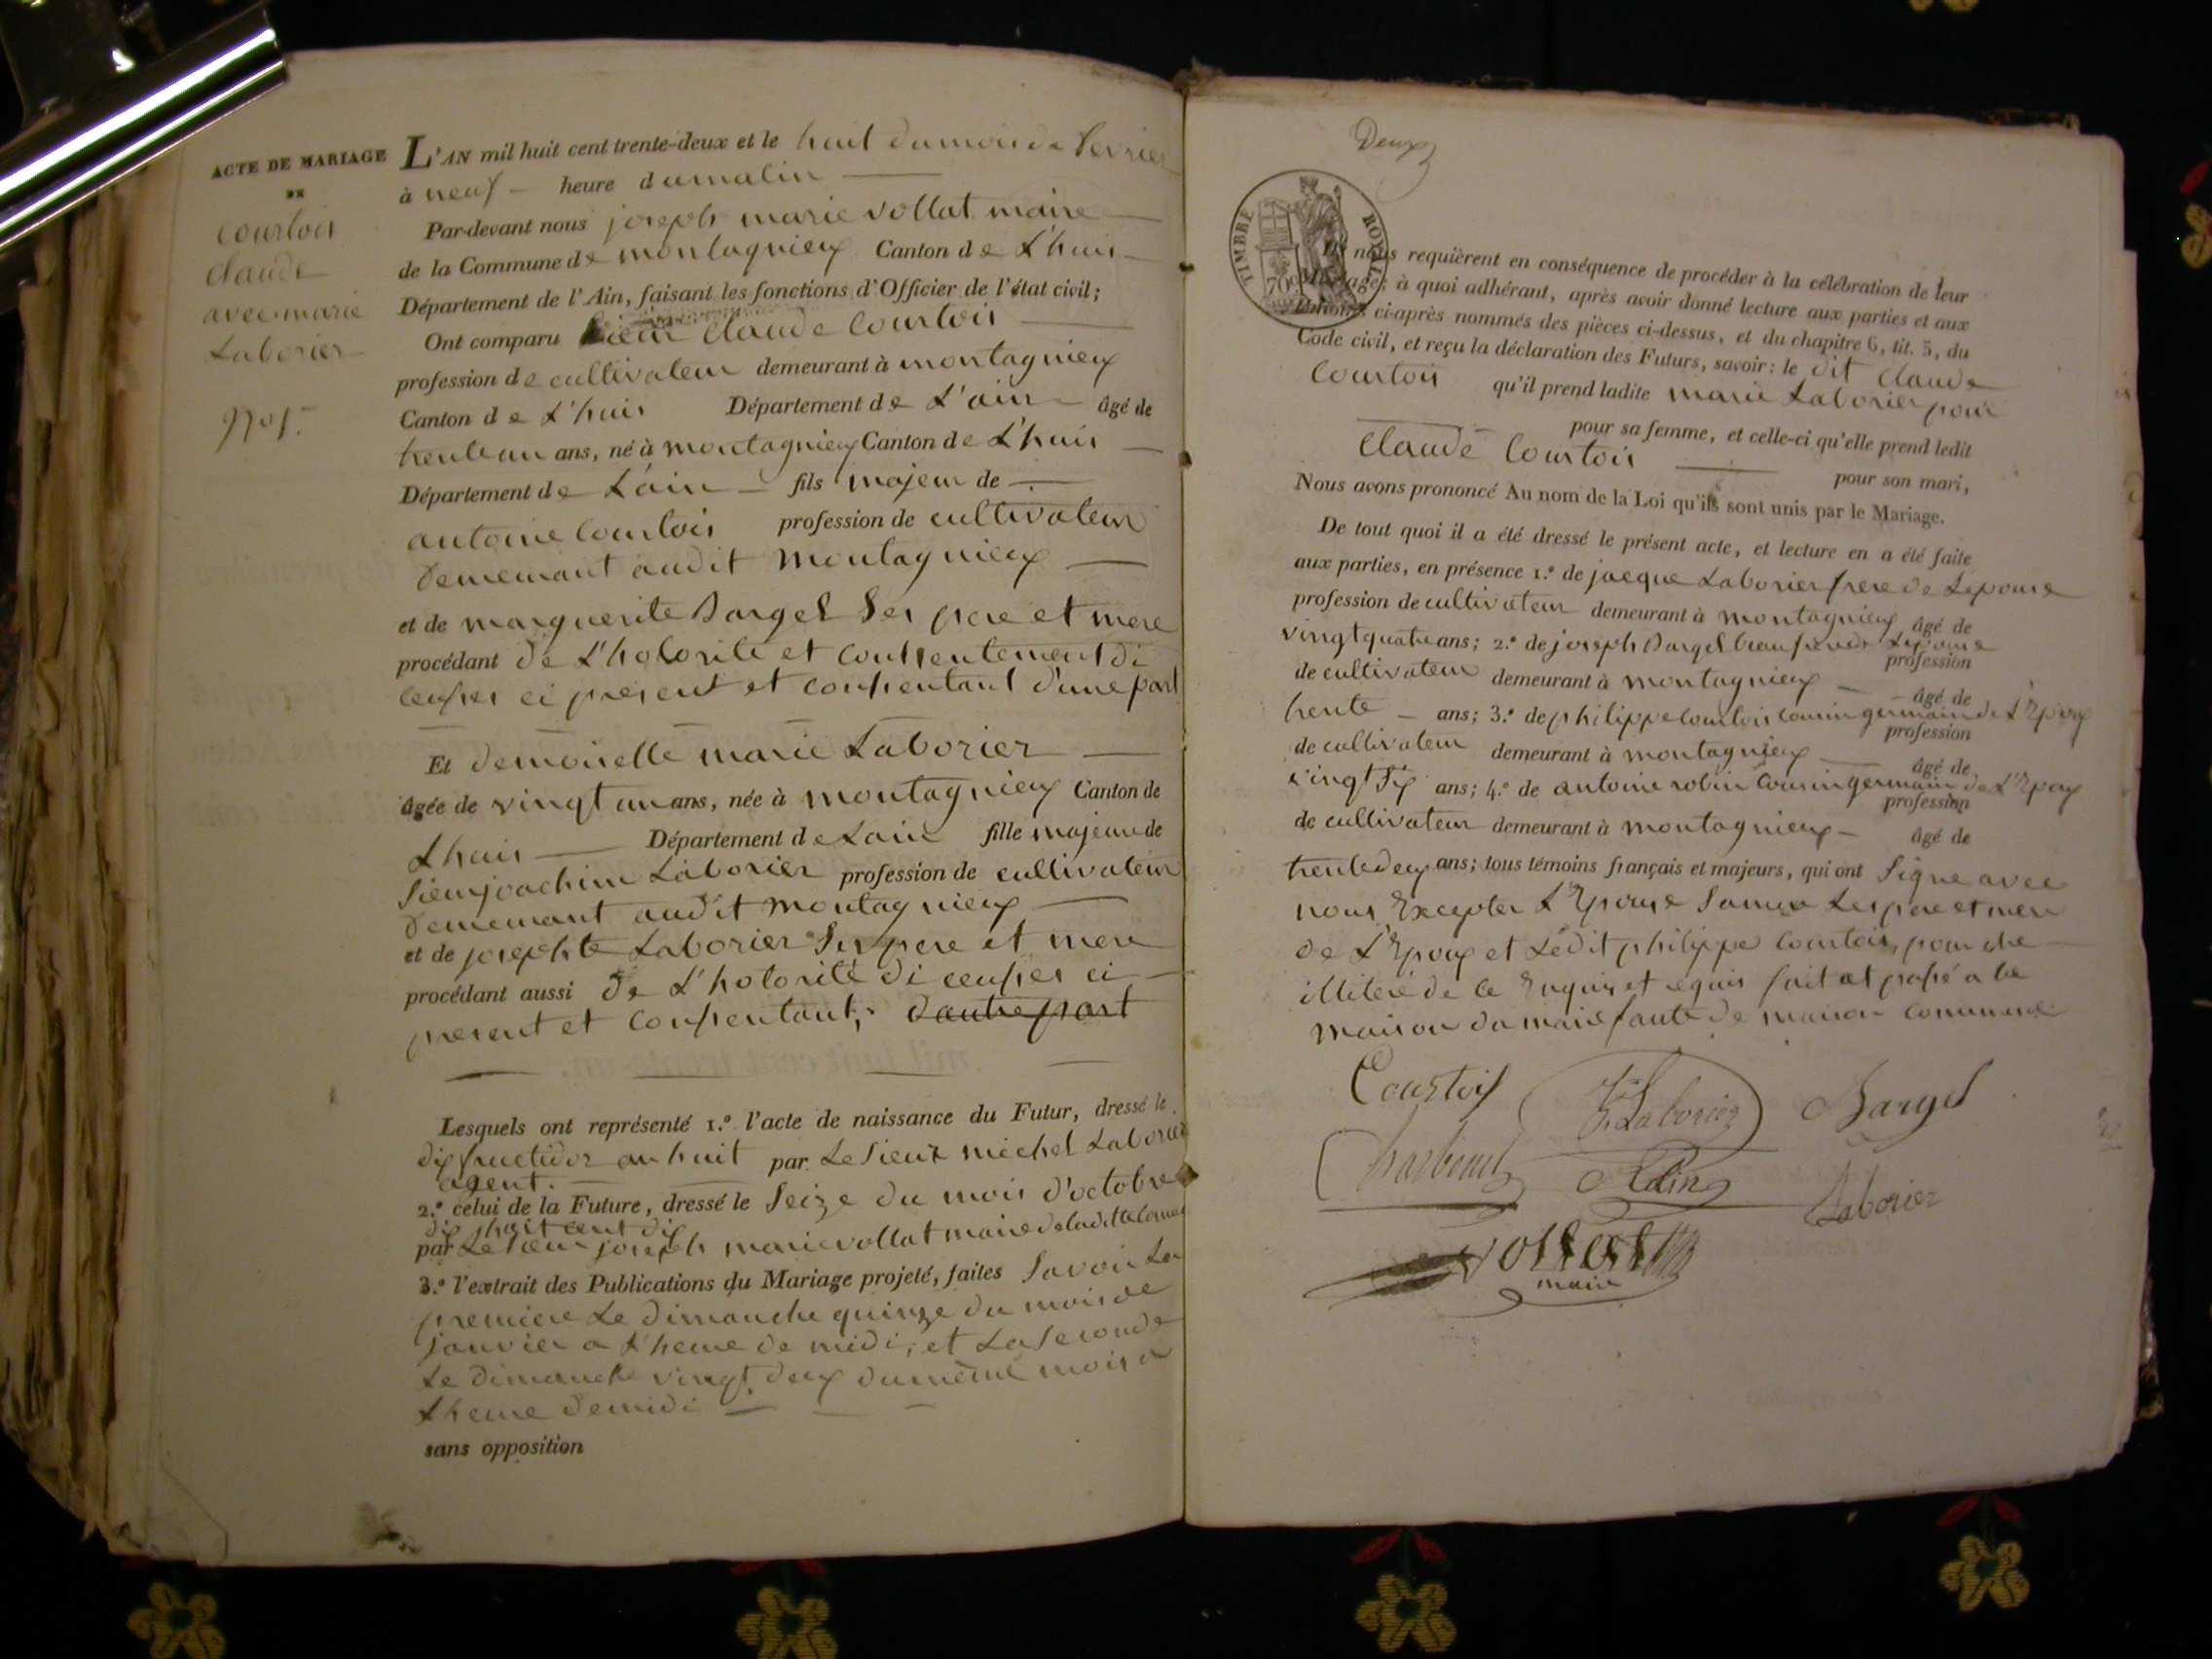 ACTE DE MARIAGE
DE
Courtois
Claude
avec marie
Laborier
No 1.
L'AN mil huit cent trente-deux et le huit du mois de fevrier
à neuf heure du matin
Par-devant nous joseph marie vollat maire
de la Commune de montagnieux Canton de L'huis
Département de l'Ain, faisant les fonctions d'Officier de l'état civil;
Ont comparu sieur Claude Courtois
profession de cultivateur demeurant à montagnieux
Canton de L'huis Département de L'ain âgé de
trente un ans, né à montagnieux Canton de L'huis
Département de L'ain fils majeur de
antoine Courtois profession de cultivateur
demeurant audit montagnieux
et de marguerite Bargel ses pere et mere
procédant de L'hotorité et consentement di
ceusses ci present et consentant d'une part
Et demoiselle marie Laborier
âgée de vingt un ans, née à montagnieux Canton de
Lhuis Département de Lain fille majeure de
sieur joachim Laborier profession de cultivateur
demeurant audit montagnieux
et de josephte Laborier ses pere et mere
procédant aussi de L'hotorité di ceusses ci
present et consentant, d'autre part
mil huit cent trente-un.
Lesquels ont représenté 1.º l'acte de naissance du Futur, dressé le
dix fructidor an huit par Le sieur michel Laborier
agent.
2.º celui de la Future, dressé le seize du mois d'octobre
dix huit cent dix
par Le sieur joseph marie vollat maire de ladite
3.º l'extrait des Publications du Mariage projeté, faites savoir La
premiere Le dimanche quinze du mois de
janvier a L'heure de midi, et La seconde
Le dimanche vingt deux du même mois a
Lheure de midi
sans opposition
Deux
TIMBRE ROYAL
70c
Ils nous requièrent en conséquence de procéder à la célébration de leur
Mariage; à quoi adhérant, après avoir donné lecture aux parties et aux
témoins ci-après nommés des pièces ci-dessus, et du chapitre 6, tit. 5, du
Code civil, et reçu la déclaration des Futurs, savoir: le dit Claude
Courtois qu'il prend ladite marie Laborier pour
pour sa femme, et celle-ci qu'elle prend ledit
Claude Courtois
pour son mari,
Nous avons prononcé Au nom de la Loi qu'ils sont unis par le Mariage.
De tout quoi il a été dressé le présent acte, et lecture en a été faite
aux parties, en présence 1.º de jacque Laborier frere de Lepouse
profession de cultivateur demeurant à montagnieux âgé de
vingt quatre ans; 2.º de joseph Bargel beau frere de Lepouse
profession
de cultivateur demeurant à montagnieux âgé de
trente ans; 3.º de philippe Courtois cousin germain de L'Epoux
profession
de cultivateur demeurant à montagnieux âgé de
vingt six ans; 4.º de antoine robin cousin germain de L'Epoux
profession
de cultivateur demeurant à montagnieux âgé de
trente deux ans; tous témoins français et majeurs, qui ont signe avec
nous Excepter L'Epouse sa mere Les pere et mere
de L'Epoux et Ledit philippe Courtois, pour etre
illiteré de ce Enquis et requis fait et passé a la
maison du maire faute de maison commune
Courtois J. Laborier Bargel
Robin Laborier
vollat
maire